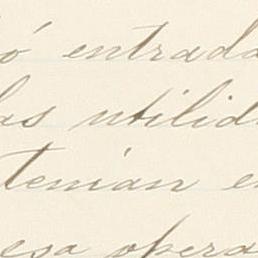 ó entrada
las utilid
tenían e
esa opera